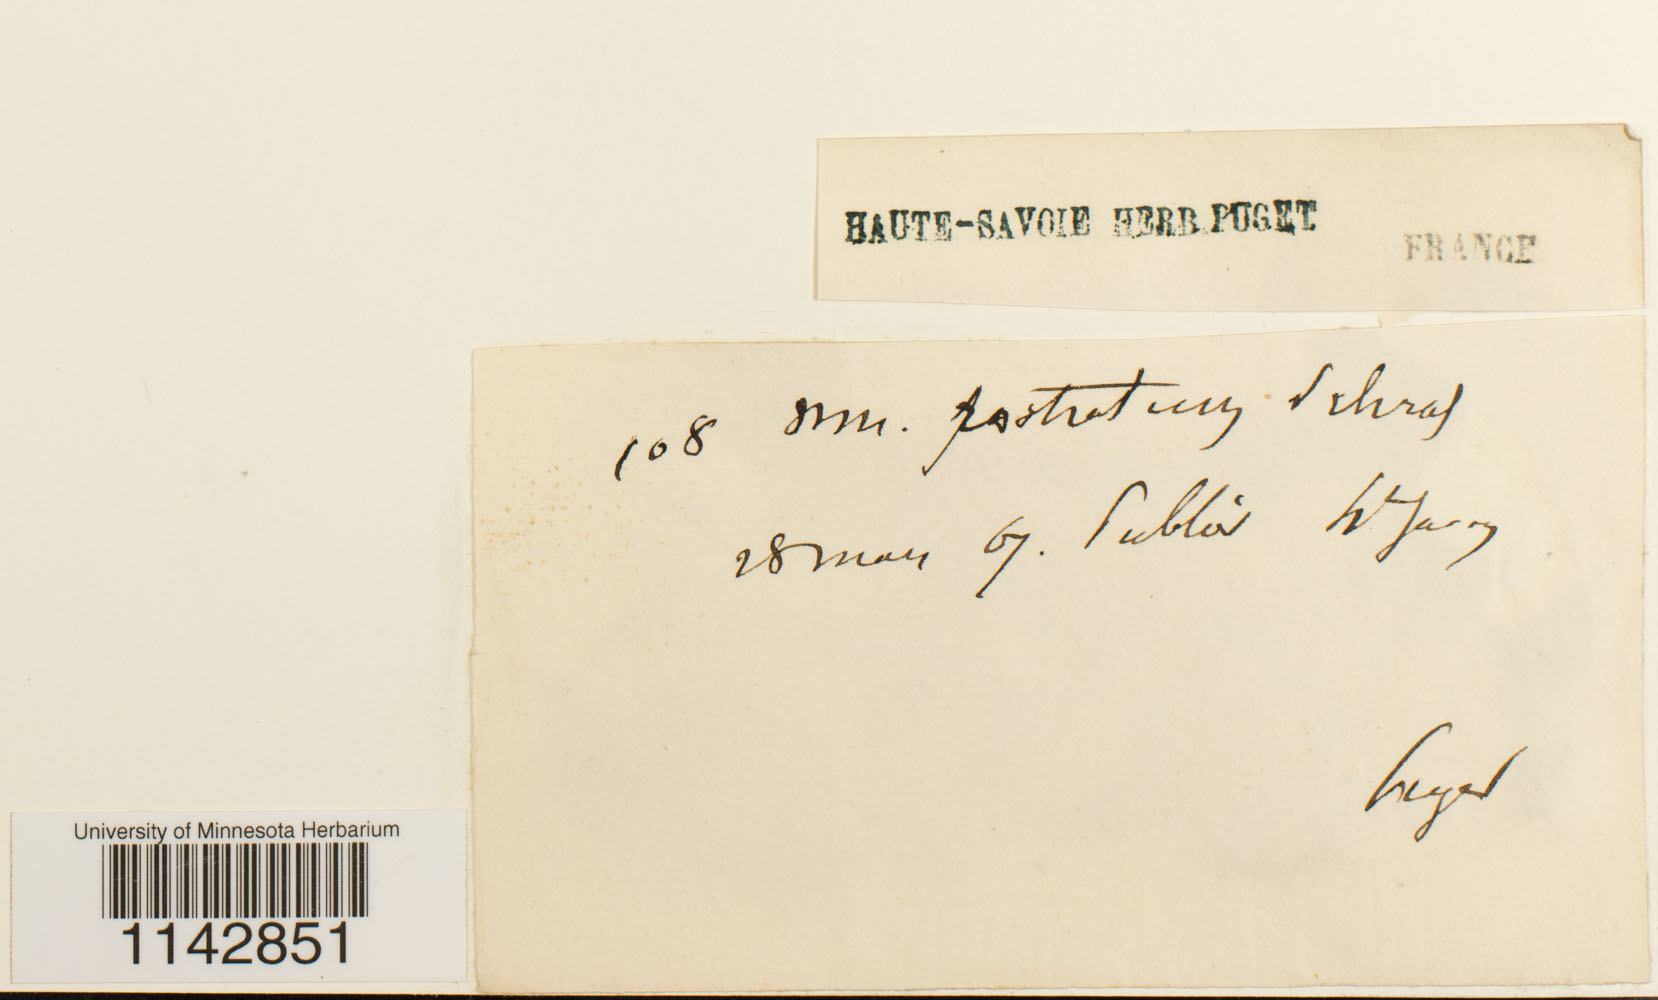 HAUTE-SAVOIE HERB. PUGET
FRANCE
108 postratum Schrad
28 mars 67. Publier
Puget
University of Minnesota Herbarium
1142851